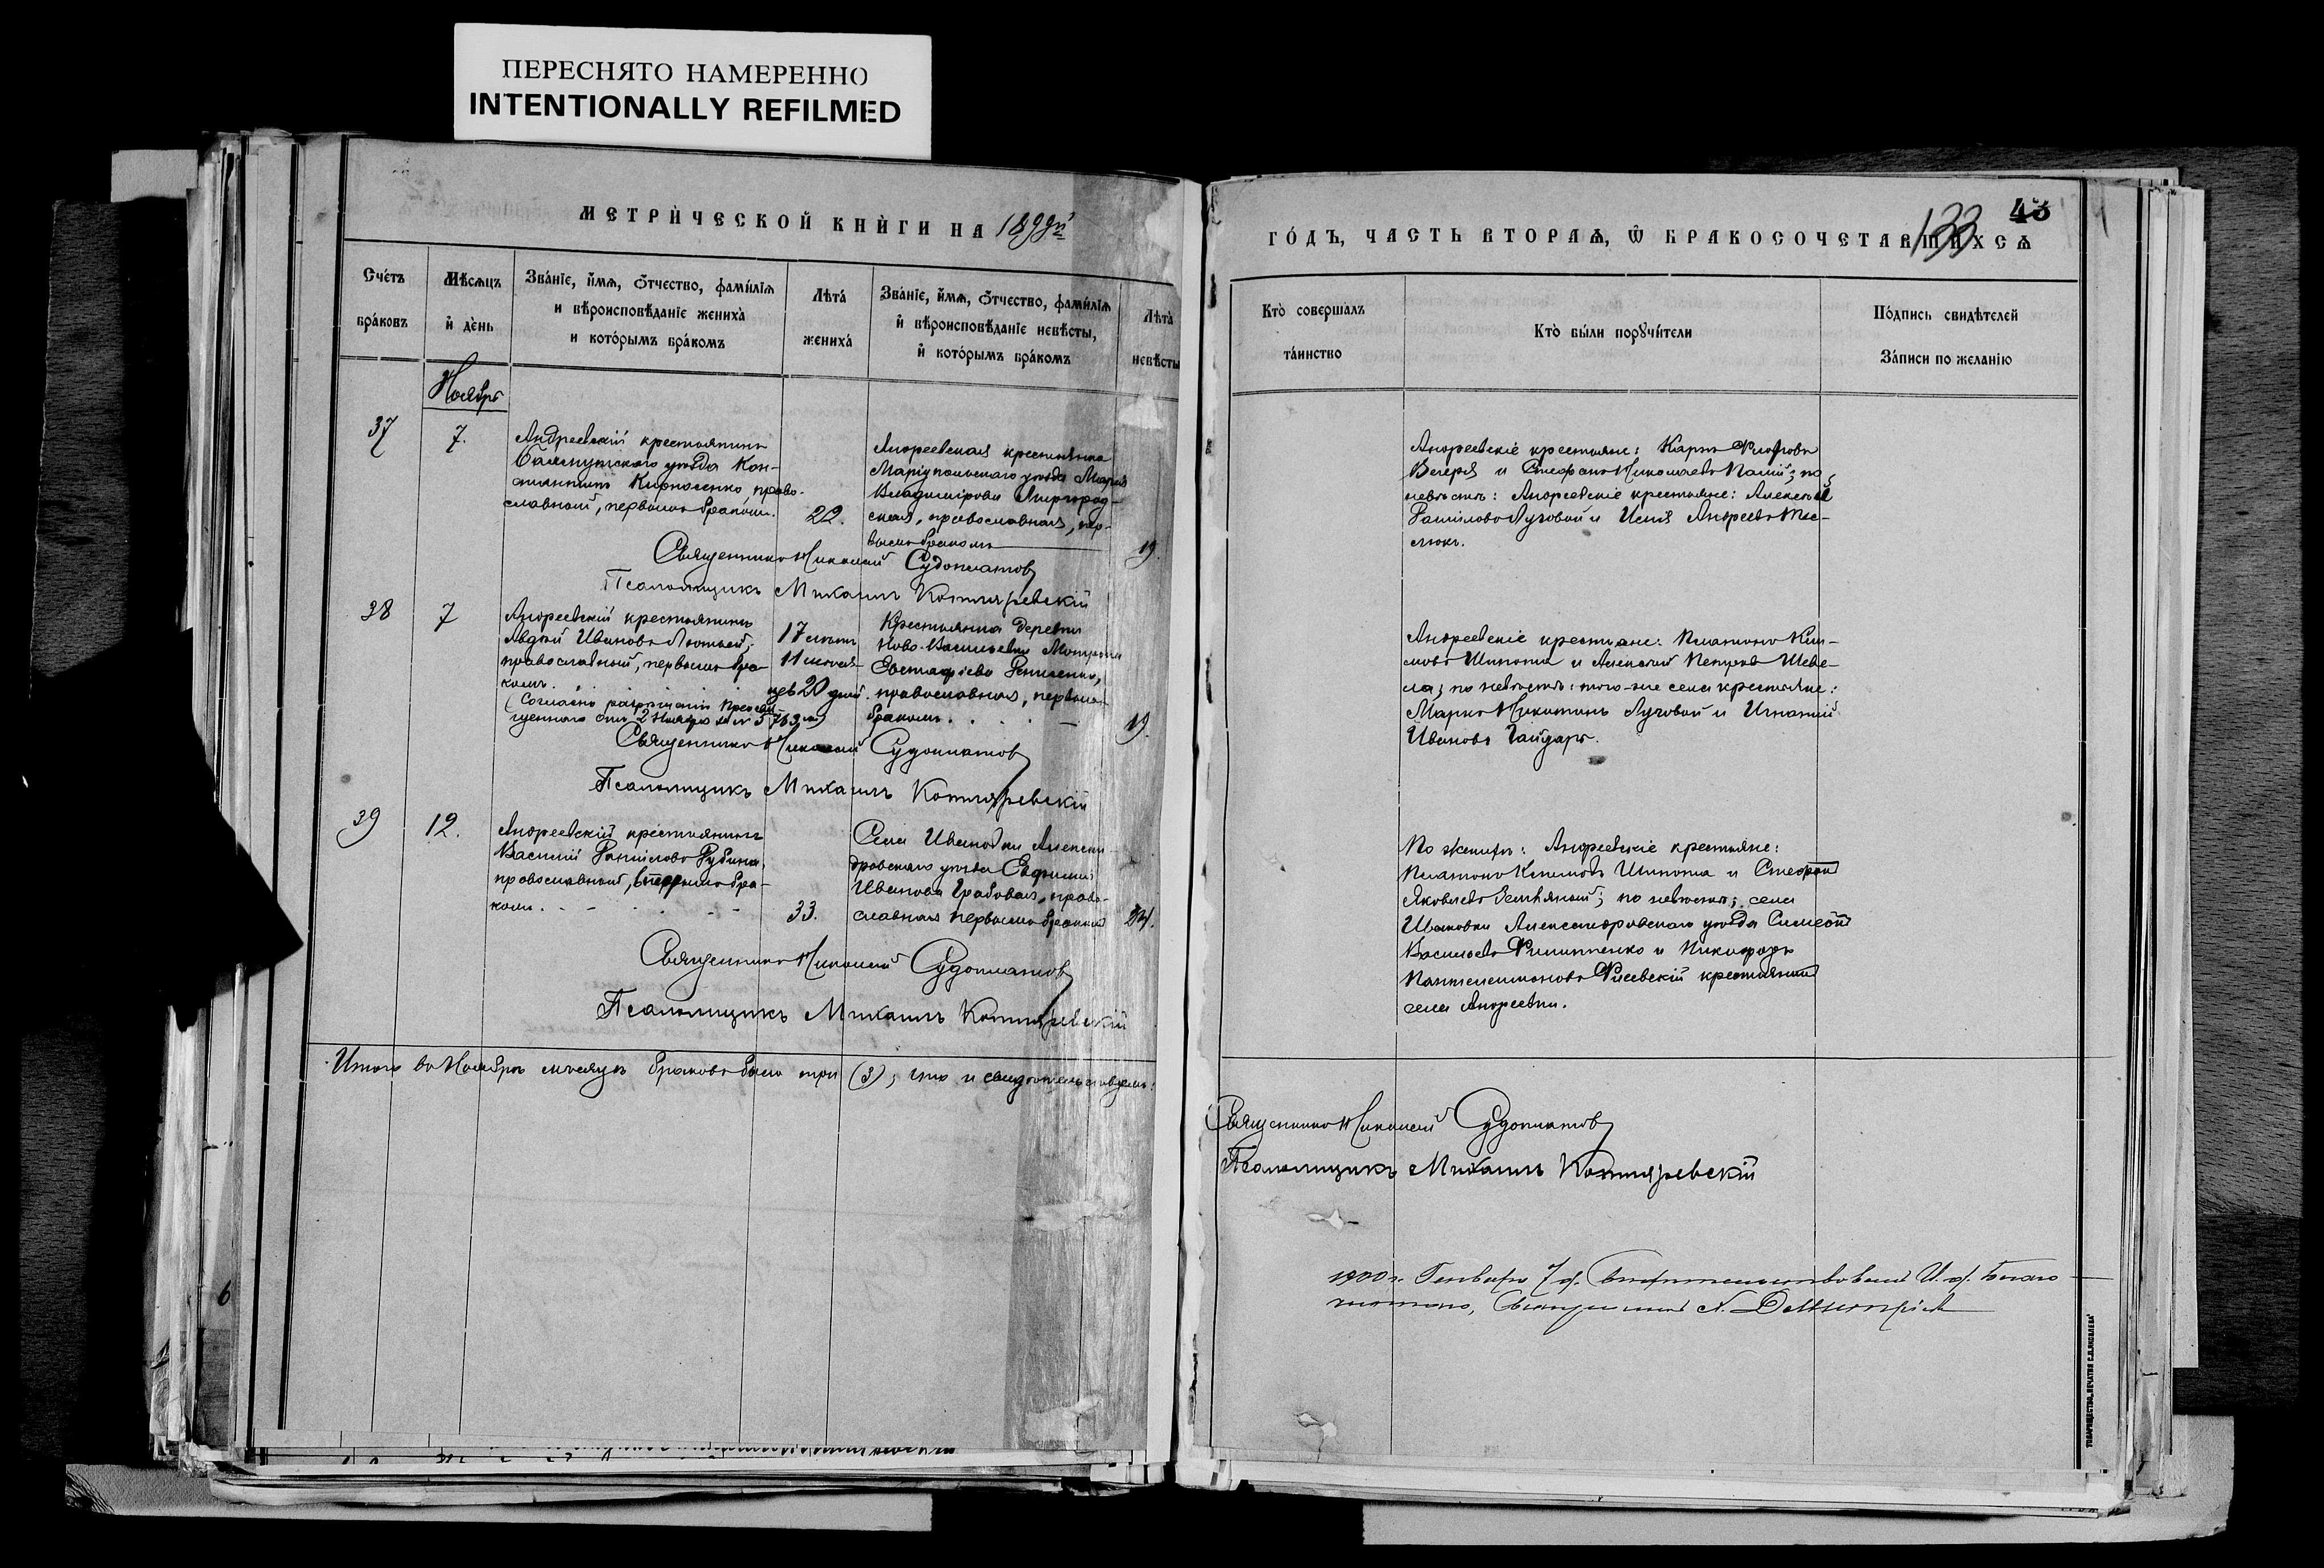 ПЕРЕСНЯТО НАМЕРЕННО
INTENTIONALLY REFILMED
МЕТРИЧЕСКОЙ КНИГИ НА 1899й
Счетъ браковъ
Мѣсяцъ и день
Званіе, имя, отчество, фамилія
и вѣроисповѣданіе жениха
и которымъ бракомъ
Лѣта жениха
Званіе, имя, отчество, фамилія
и вѣроисповѣданіе невѣсты,
и которымъ бракомъ
Лѣта невѣсты
Ноябрь
37
7.
Андреевскій крестьянинъ
уѣзда Кон-
право-
славный, первымъ бракомъ.
22.
Андреевская крестьянка
Маріупольскаго уѣзда Марія
Владимірова Миргород-
ская, православная, пер-
вымъ бракомъ
19.
Священникъ Николай Судоплатовъ
Псаломщикъ Михаилъ Котляревскій
38
7
Андреевскій крестьянинъ
Авдій Ивановъ Лютый,
православный, первымъ бра-
комъ.
(Согласно разрѣшенія Преосвя-
щеннаго отъ 2 Ноября за № 5763)
17 лѣтъ
11 мѣся-
цев 20 дней.
Крестьянка деревни
Ново-Васильевки Мотрона
Евстафіева
православная, первымъ
бракомъ.
19.
Священникъ Николай Судоплатовъ
Псаломщикъ Михаилъ Котляревскій
39
12.
Андреевскій крестьянинъ
Василій Даніиловъ
православный, бра-
комъ.
33.
Села Ивановки Алексан-
дровскаго уѣзда Евфимія
Иванова Грабовая, право-
славная первымъ бракомъ
24.
Священникъ Николай Судоплатовъ
Псаломщикъ Михаилъ Котляревскій
Итого въ Ноябрѣ мѣсяцѣ браковъ было три (3); что и свидѣтельствуемъ:
43
133
ГОДЪ, ЧАСТЬ ВТОРАЯ, Ѡ БРАКОСОЧЕТАВШИХСЯ
Кто совершалъ таинство
Кто были поручители
Подпись свидѣтелей
Записи по желанію
Андреевскіе крестьяне: Карпъ
Вечеря и Стефанъ Николаевъ Палій; по
невѣстѣ: Андреевскіе крестьяне: Алексѣй
Даніиловъ Луговой и Исаія Андреевъ
Андреевскіе крестьяне: Платонъ Кли-
мовъ Шипота и Алексій Петровъ Шеве-
ла; по невѣстѣ: того-же села крестьяне:
Марко Никитинъ Луговой и Игнатій
Ивановъ Гайдаръ.
По женихѣ: Андреевскіе крестьяне:
Платонъ Климовъ Шипота и Стефанъ
Яковлевъ Земляный; по невѣстѣ: села
Ивановки Александровскаго уѣзда Симеонъ
Васильевъ Филиппенко и Никифоръ
Пантелеимоновъ крестьянинъ
села Андреевки.
Священникъ Николай Судоплатовъ
Псаломщикъ Михаилъ Котляревскій
1900 г. Генваря 7 д. И. д. Благо-
чиннаго, Священникъ
ТОВАРИЩЕСТВО „ПЕЧАТНЯ С.П.ЯКОВЛЕВА"
6